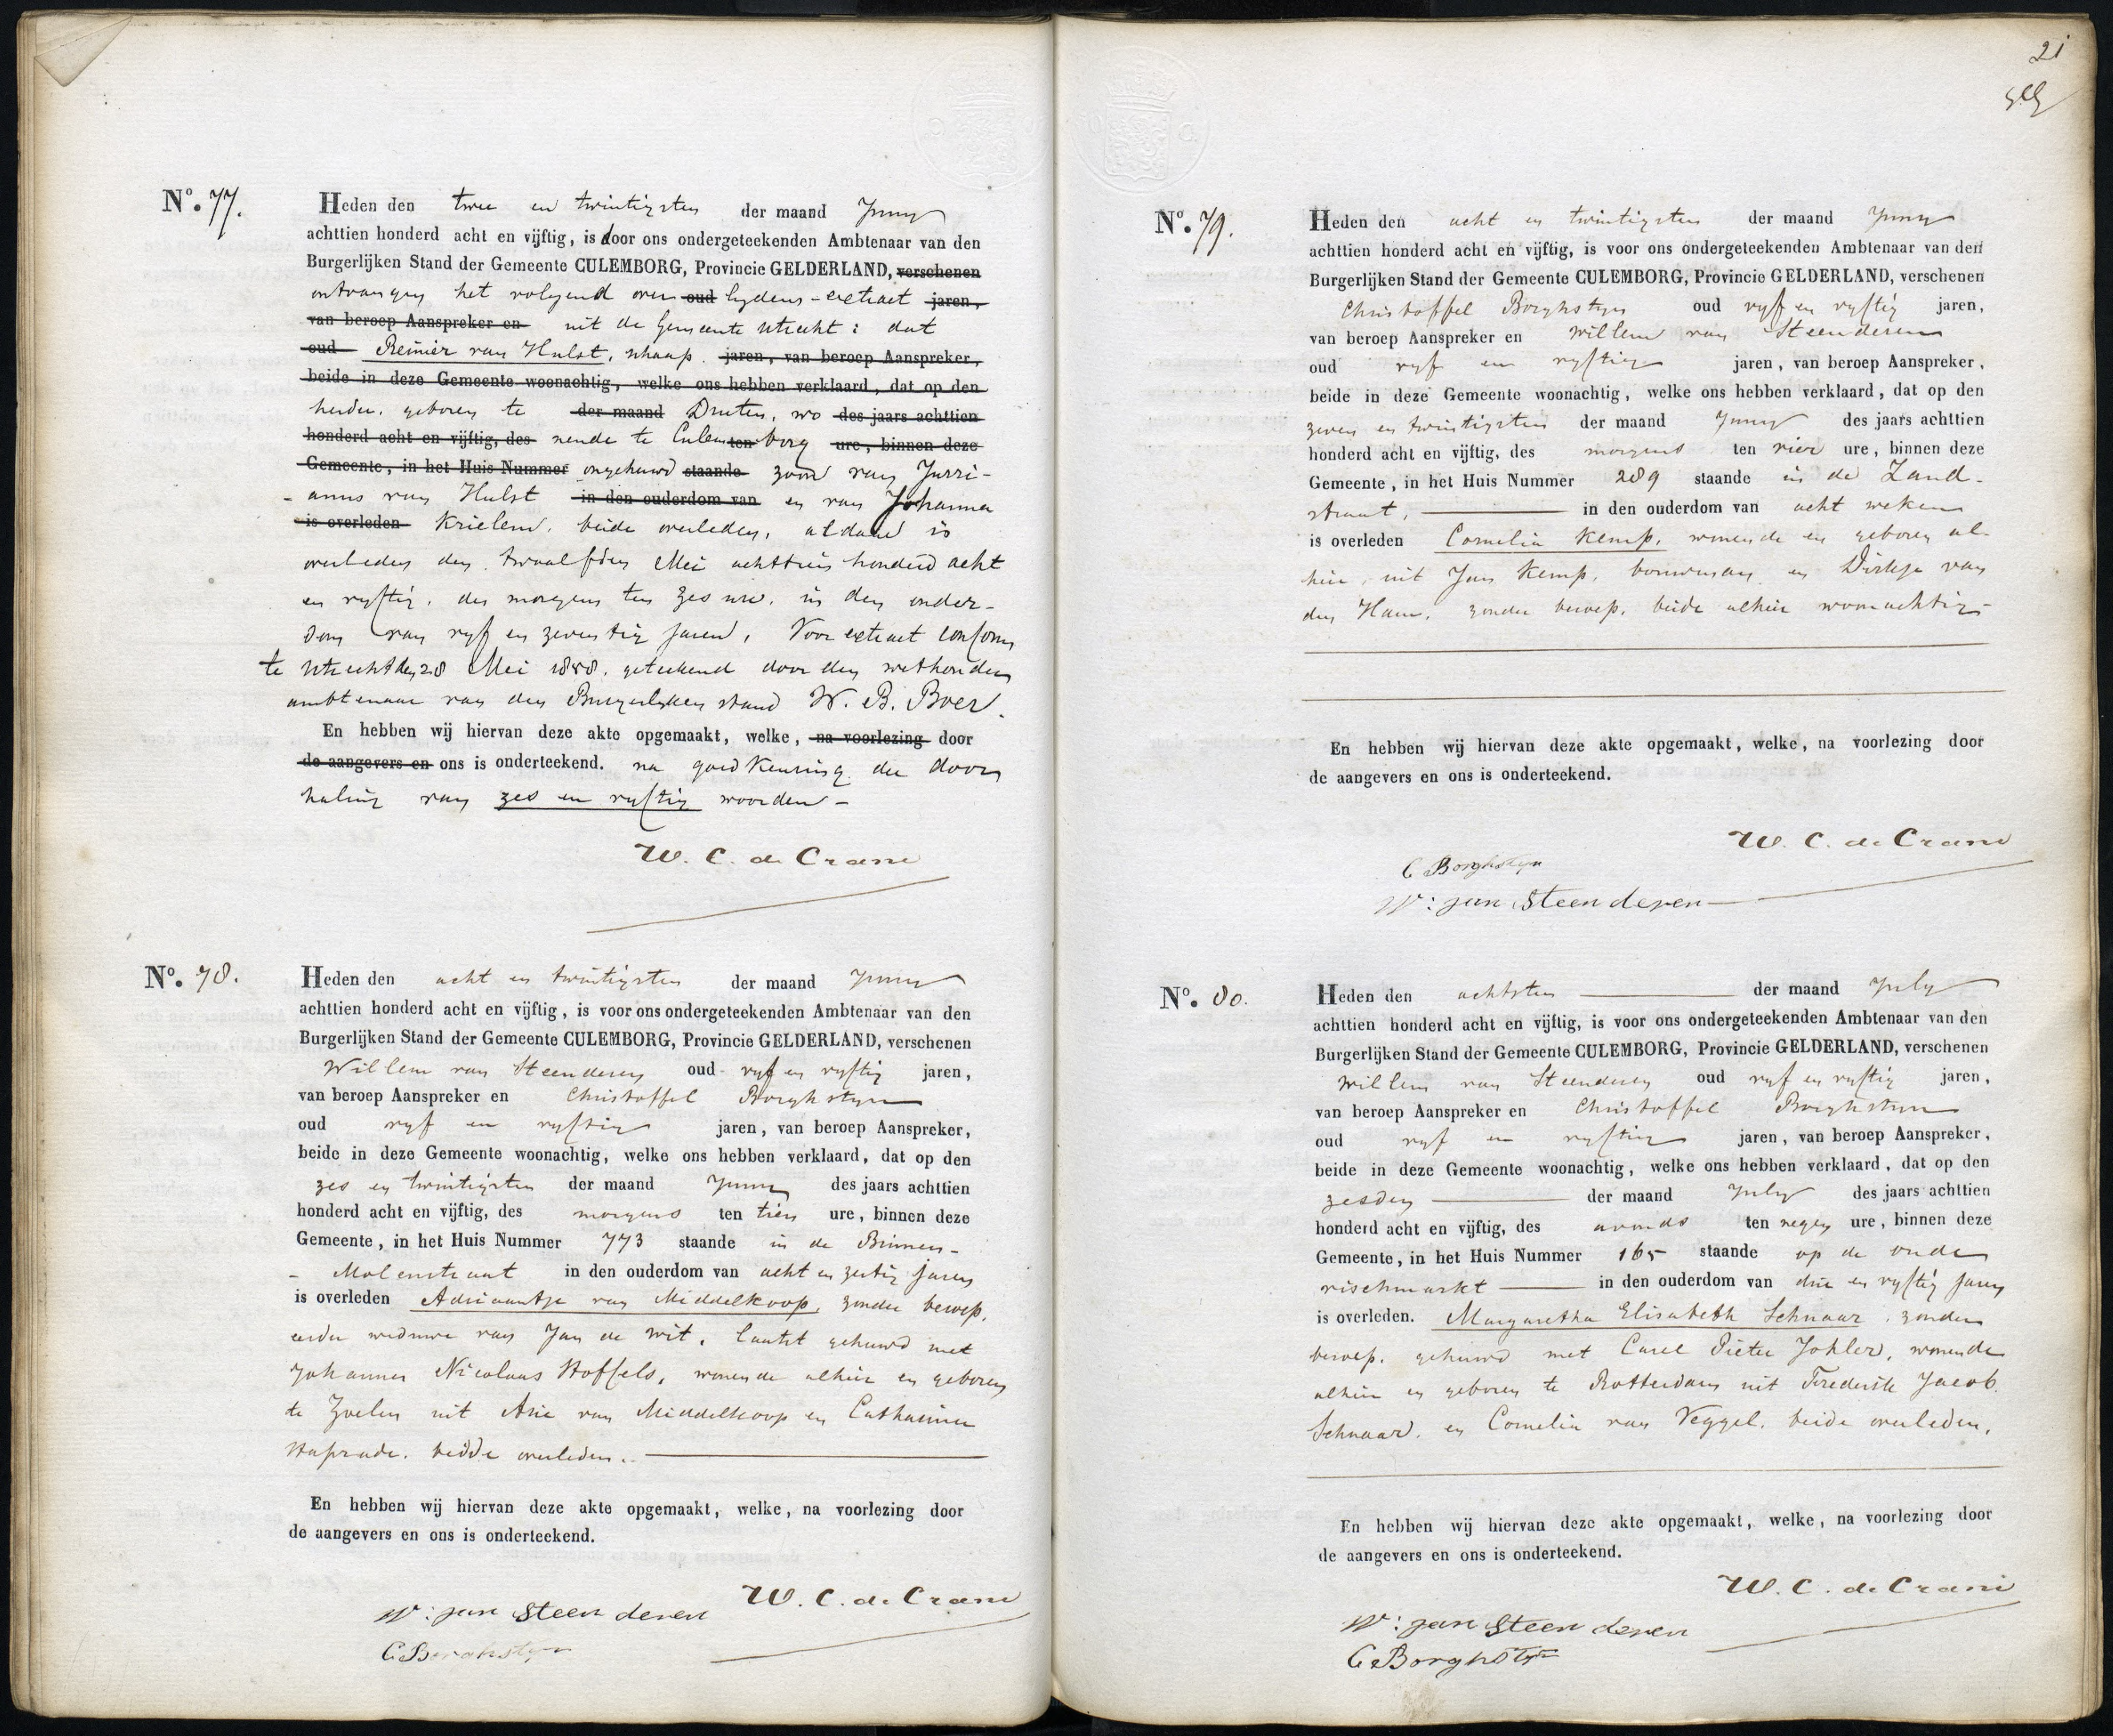 N.o 77.
Heden den twee en twintigsten der maand Juny
achttien honderd acht en vijftig, is door ons ondergeteekenden Ambtenaar van den
Burgerlijken Stand der Gemeente CULEMBORG, Provincie GELDERLAND, verschenen
ontvangen het volgend over oud lydens-extract jaren,
van beroep Aanspreker en uit de Gemeente Utrecht: dat
oud Reinier van Hulst, schaap jaren, van beroep Aanspreker,
beide in deze Gemeente woonachtig, welke ons hebben verklaard, dat op den
herder, geboren te der maand Druten, wo des jaars achttien
honderd acht en vijftig, des nende te Culem ten borg ure, binnen deze
Gemeente, in het Huis Nummer ongehuwd staande zoon van Jurri-
anus van Hulst in den ouderdom van en van Johanna
is overleden Krielen, beide overleden, aldaar is
overleden den twaalfden Mei achttien honderd acht
en vyftig, des morgens ten zes ure, in den ouder-
dom van vyf en zeventig jaren, Voor extract conform
te Utrecht den 28 Mei 1858. geteekend door den wethouder
ambtenaar van den Burgerlyken stand W. B. Boer.
En hebben wij hiervan deze akte opgemaakt, welke, na voorlezing door
de aangevers en ons is onderteekend. na goedkeuring der door
haling van zes en vyftig woorden -
W. C. de Crane
N.o 78.
Heden den acht en twintigsten der maand Juny
achttien honderd acht en vijftig, is voor ons ondergeteekenden Ambtenaar van den
Burgerlijken Stand der Gemeente CULEMBORG, Provincie GELDERLAND, verschenen
Willem van Steenderen oud vyf en vyftig jaren,
van beroep Aanspreker en Christoffel Borghstyn
oud vyf en vyftig jaren, van beroep Aanspreker,
beide in deze Gemeente woonachtig, welke ons hebben verklaard, dat op den
zes en twintigsten der maand Juny des jaars achttien
honderd acht en vijftig, des morgens ten tien ure, binnen deze
Gemeente, in het Huis Nummer 773 staande in de Binnen-
- Molenstraat in den ouderdom van acht en zestig jaren
is overleden Adriaantje van Middelkoop, zonder beroep,
eerder weduwe van Jan de Wit, laatst gehuwd met
Johannes Nicolaas Stoffels, wonende alhier en geboren
te Zoelen uit Arie van Middelkoop en Catharina
beidde overleden.
En hebben wij hiervan deze akte opgemaakt, welke, na voorlezing door
de aangevers en ons is onderteekend.
W. C. de Crane
W: van Steenderen
C Borghstyn
21
N.o 79.
Heden den acht en twintigsten der maand Juny
achttien honderd acht en vijftig, is voor ons ondergeteekenden Ambtenaar van den
Burgerlijken Stand der Gemeente CULEMBORG, Provincie GELDERLAND, verschenen
Christoffel Borghstyn oud vyf en vyftig jaren,
van beroep Aanspreker en Willem van Steenderen
oud vyf en vyftig jaren, van beroep Aanspreker,
beide in deze Gemeente woonachtig, welke ons hebben verklaard, dat op den
zeven en twintigsten der maand Juny des jaars achttien
honderd acht en vijftig, des morgens ten vier ure, binnen deze
Gemeente, in het Huis Nummer 289 staande in de Zand-
straat, in den ouderdom van acht weken
is overleden Cornelia Kemp, wonende en geboren al-
hier, uit Jan Kemp, bouwman en Dirkje van
den Ham, zonder beroep, beide alhier woonachtig -
En hebben wij hiervan deze akte opgemaakt, welke, na voorlezing door
de aangevers en ons is onderteekend.
W. C. de Crane
C Borghstyn
W: van Steenderen
N.o 80.
Heden den achtsten der maand July
achttien honderd acht en vijftig, is voor ons ondergeteekenden Ambtenaar van den
Burgerlijken Stand der Gemeente CULEMBORG, Provincie GELDERLAND, verschenen
Willem van Steenderen oud vyf en vyftig jaren,
van beroep Aanspreker en Christoffel Borghstyn
oud vyf en vyftig jaren, van beroep Aanspreker,
beide in deze Gemeente woonachtig, welke ons hebben verklaard, dat op den
zesden der maand July des jaars achttien
honderd acht en vijftig, des avonds ten negen ure, binnen deze
Gemeente, in het Huis Nummer 165 staande op de oude
vischmarkt in den ouderdom van drie en vyftig jaren
is overleden. Margaretha Elisabeth Schnaar, zonder
beroep, gehuwd met Carel Pieter Johler, wonende
alhier en geboren te Rotterdam uit Frederik Jacob
Schnaar, en Cornelia van Veggel, beide overleden,
En hebben wij hiervan deze akte opgemaakt, welke, na voorlezing door
de aangevers en ons is onderteekend.
W. C. de Crane
W: van Steenderen
C Borghstyn